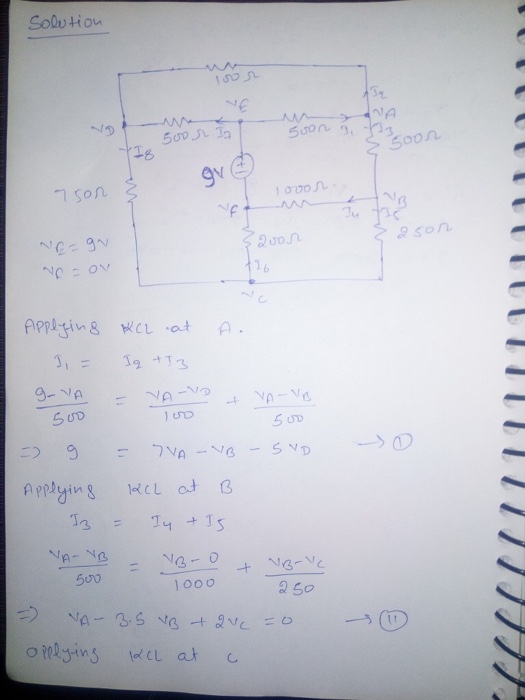 Solution
100Ω
I2
VE
VD
VA
500Ω I7
500Ω I1
I3
500Ω
I8
9V
1000Ω
750Ω
VF
I4
VB
I5
200Ω
250Ω
VE = 9V
I6
VF = 0V
VC
Applying KCL at A.
I1 = I2 + I3
9-VA / 500 = VA-VD / 100 + VA-VB / 500
=> 9 = 7VA - VB - 5VD → (I)
Applying KCL at B
I3 = I4 + I5
VA-VB / 500 = VB-0 / 1000 + VB-VC / 250
=> VA - 3.5 VB + 2VC = 0 → (II)
Applying KCL at C